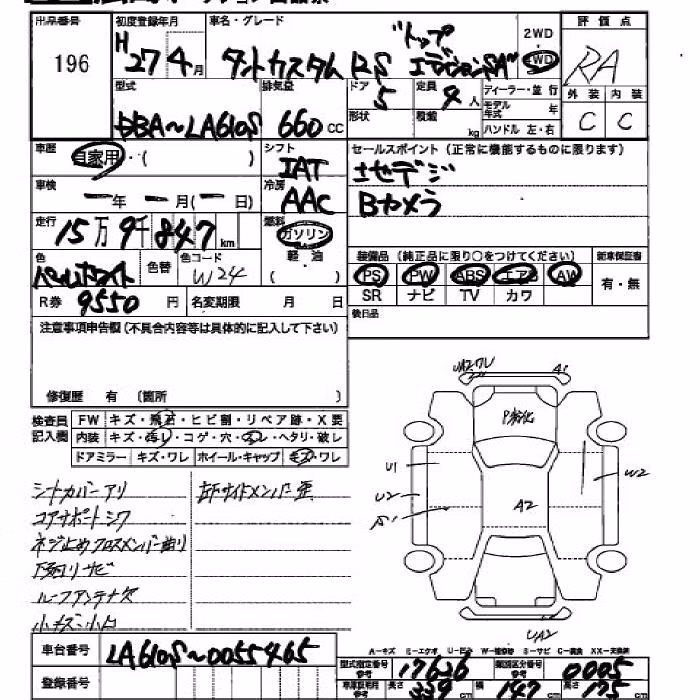 出品番号
196
初度登録年月
H 27年 4月
車名・グレード
タントカスタム RS "トップエディションSA"
2WD
4WD
評価点
RA
外装 内装
C C
型式
DBA~LA610S
排気量
660 cc
ドア
5
形状
定員
4人
積載
kg
ディーラー・並行
モデル年式 年
ハンドル 左・右
車歴
自家用・( )
シフト
IAT
セールスポイント (正常に機能するものに限ります)
ナビデジ
Bカメラ
車検
ー年 ー月(ー日)
冷房
AAC
走行
15万9千847km
燃料
ガソリン
軽油
色
パールホワイト
色替
色コード
W24
装備品 (純正品に限り○をつけてください)
PS PW ABS エアB AW
SR ナビ TV カワ
新車保証書
有・無
R券 9550円
名変期限 月 日
後日品
注意事項申告欄(不具合内容等は具体的に記入して下さい)
修復歴 有 (箇所 )
検査員記入欄
FW キズ・飛石・ヒビ割・リペア跡・X要
内装 キズ・汚レ・コゲ・穴・スレ・ヘタリ・破レ
ドアミラー キズ・ワレ ホイール・キャップ キズ・ワレ
シートカバーアリ
コアサポートシワ
ネジ止めクロスメンバー曲り
下廻りサビ
ルーフアンテナ欠
小キズ小凹
右下サイドメンバー歪
UA2ワレ
A1
P劣化
U1
U2
A1
A2
W2
UA2
A-キズ E-エクボ U-凹ミ W-補修跡 S-サビ C-腐蝕 XX-交換済
車台番号
LA610S~0055465
登録番号
型式指定番号 参考
17626
類別区分番号 参考
0005
車庫証明用 参考
長さ
339 cm
幅
147 cm
高さ
175 cm